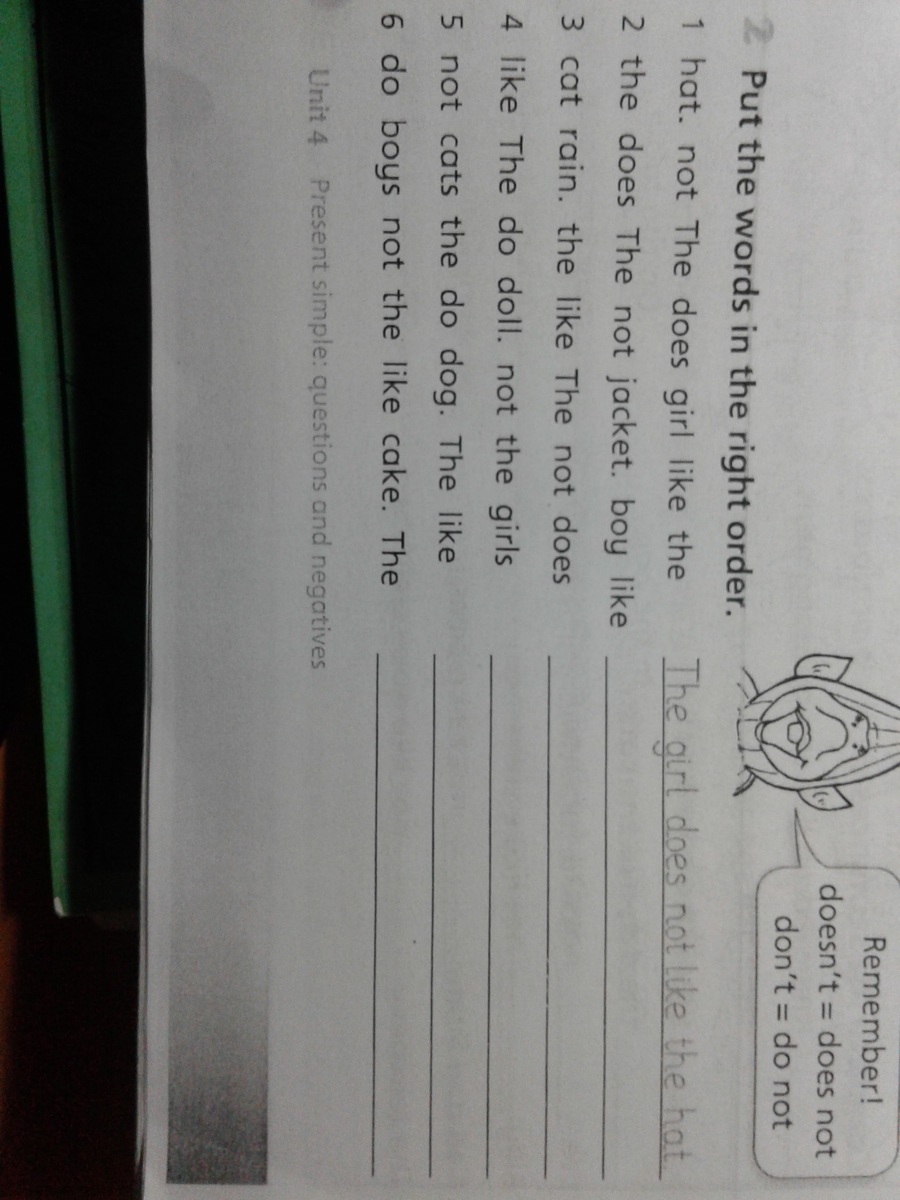 Remember!
doesn't = does not
don't = do not
2 Put the words in the right order.
1 hat. not The does girl like the The girl does not like the hat.
2 the does The not jacket. boy like
3 cat rain. the like The not does
4 like The do doll. not the girls
5 not cats the do dog. The like
6 do boys not the like cake. The
Unit 4 Present simple: questions and negatives